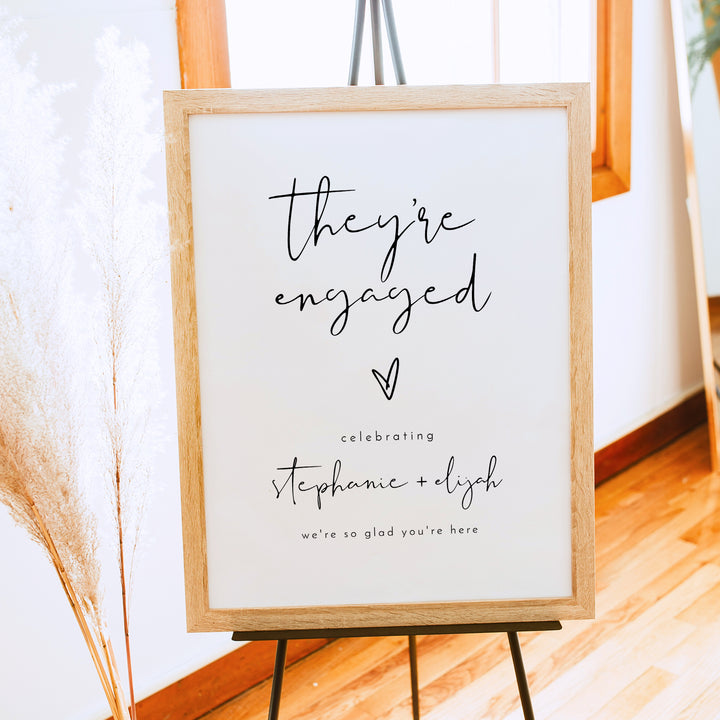 they're
engaged
celebrating
stephanie + elijah
we're so glad you're here